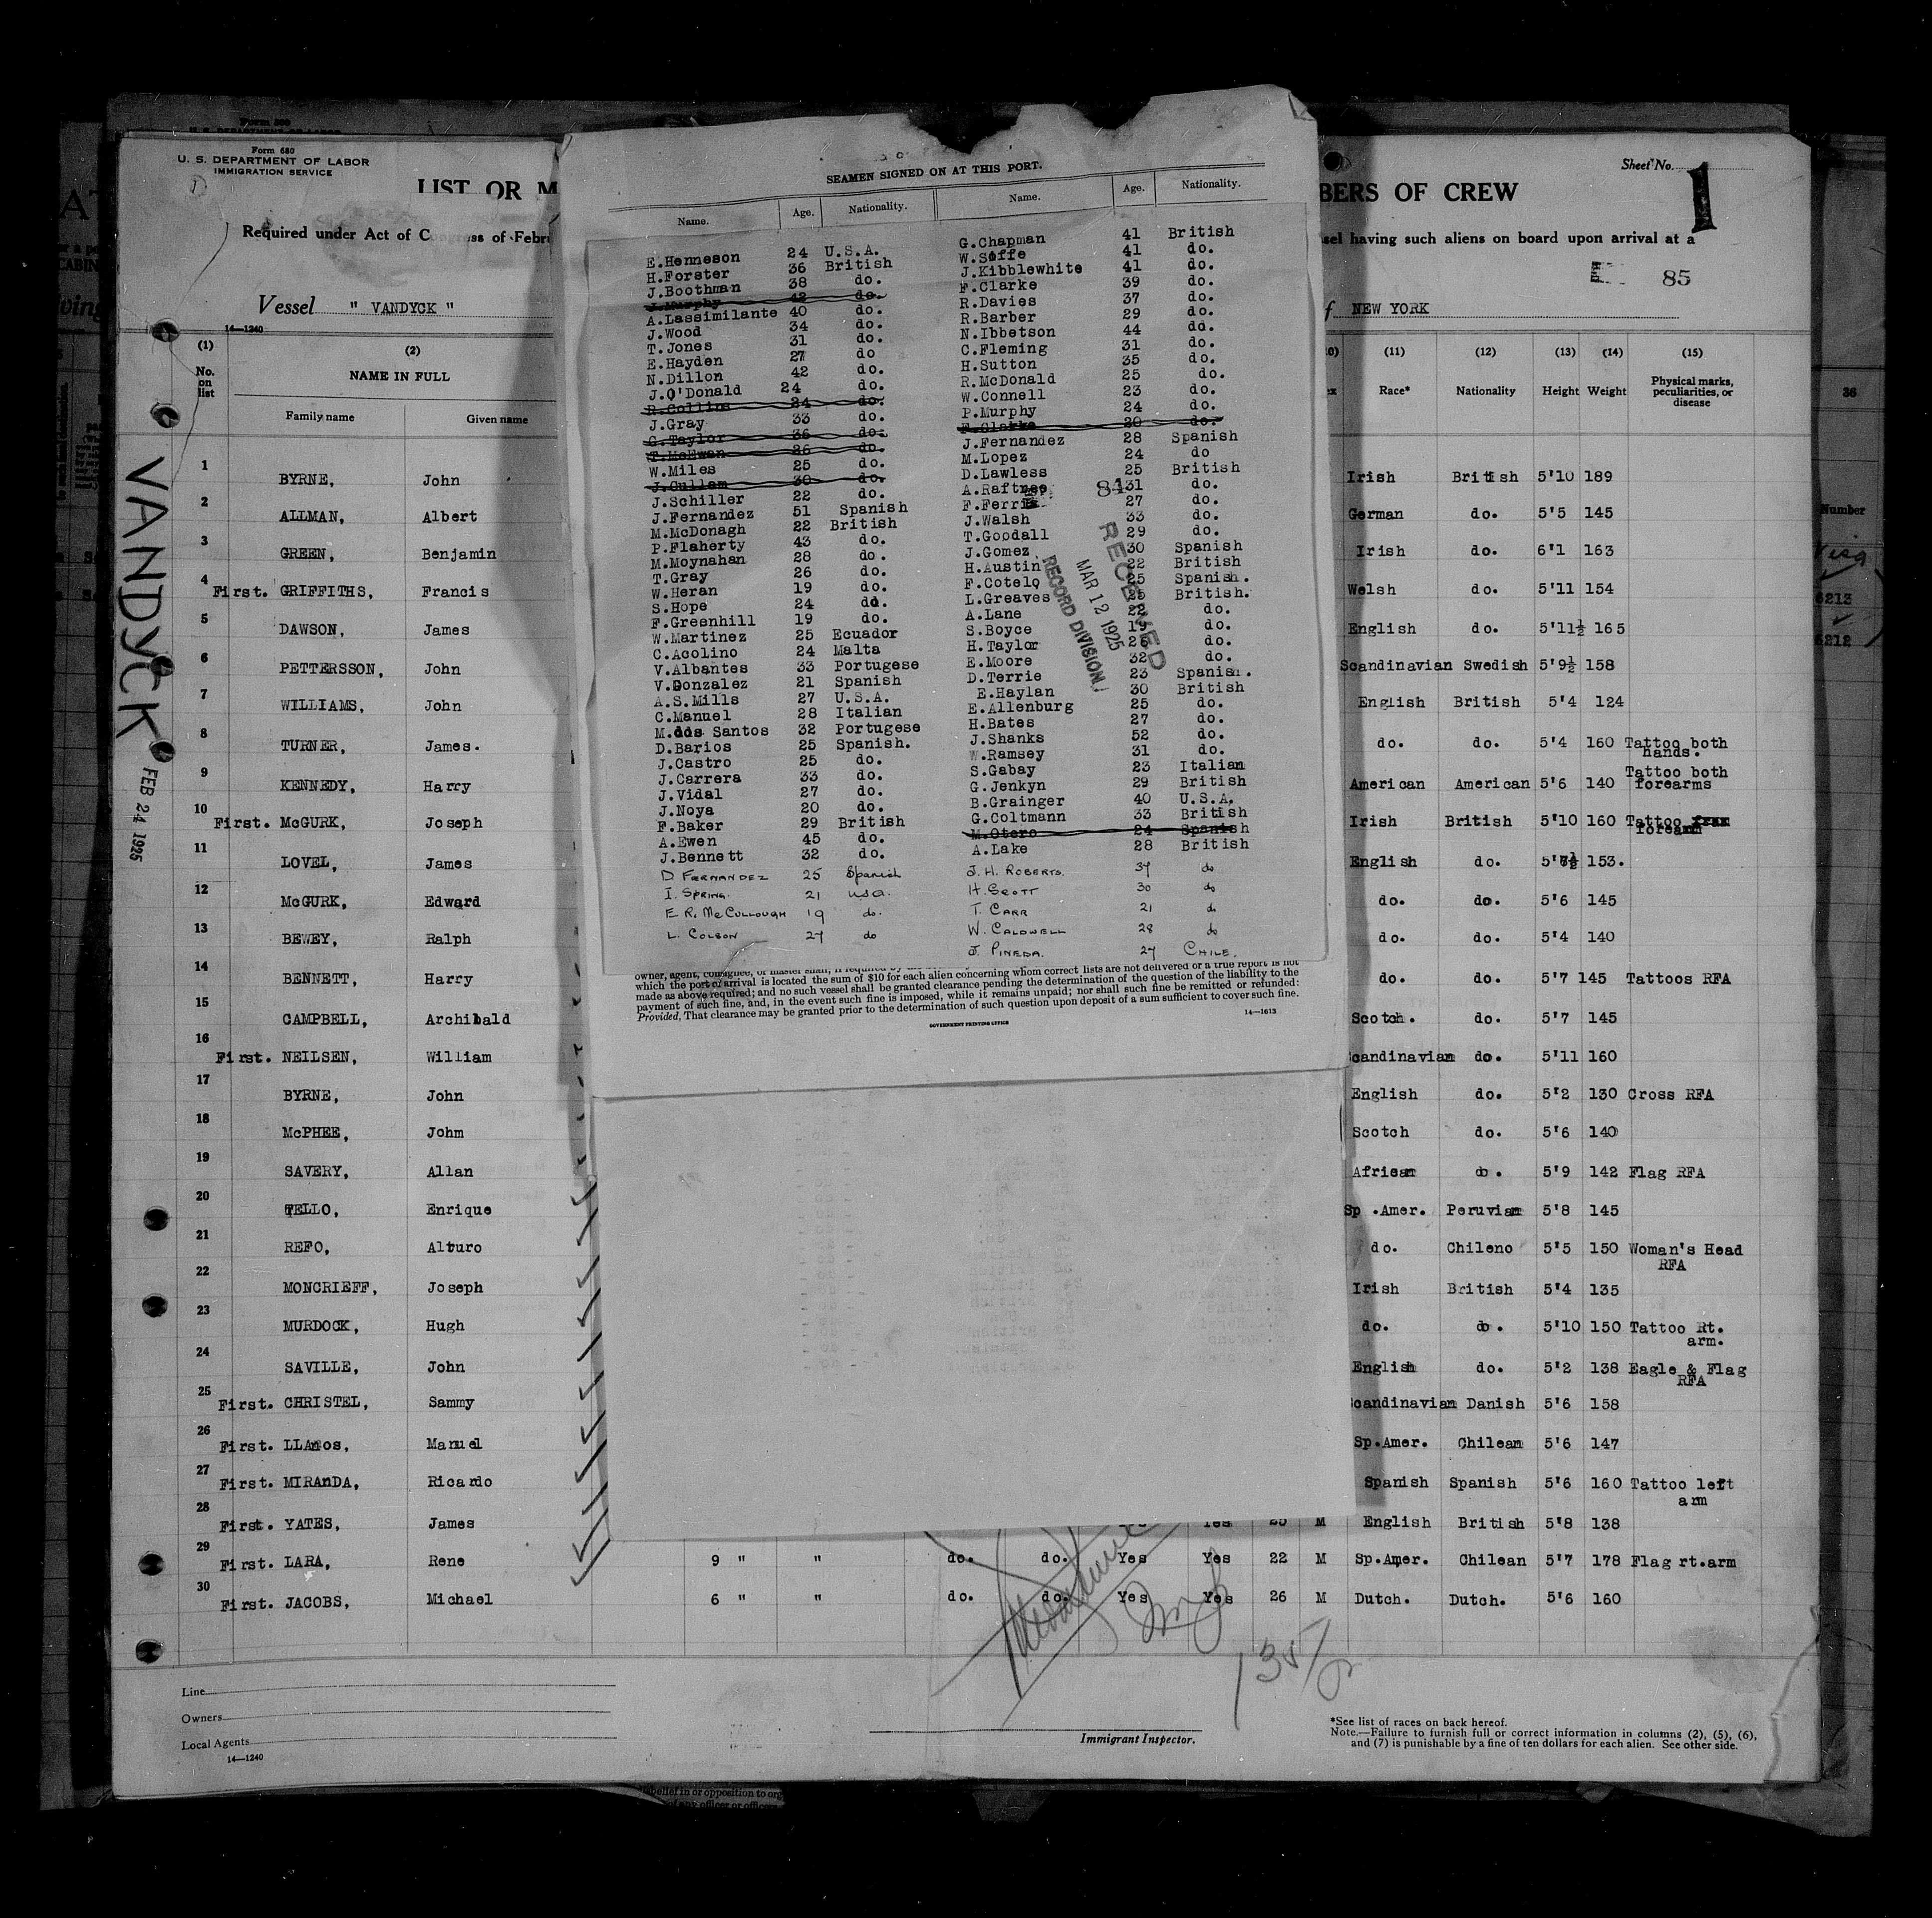 Form 680
U. S. DEPARTMENT OF LABOR
IMMIGRATION SERVICE
LIST OR M
BERS OF CREW
Sheet No.
1
Required under Act of C ess of Febru
sel having such aliens on board upon arrival at a
85
Vessel " VANDYCK "
f NEW YORK
14—1240
(1) (2) (11) (12) (13) (14) (15)
No. on list NAME IN FULL Race* Nationality Height Weight Physical marks, peculiarities, or disease
Family name Given name
VANDYCK
FEB 24 1925
1 BYRNE, John Irish British 5'10 189
2 ALLMAN, Albert German do. 5'5 145
3 GREEN, Benjamin Irish do. 6'1 163
4 First. GRIFFITHS, Francis Welsh do. 5'11 154
5 DAWSON, James English do. 5'11½ 165
6 PETTERSSON, John Scandinavian Swedish 5'9½ 158
7 WILLIAMS, John English British 5'4 124
8 TURNER, James. do. do. 5'4 160 Tattoo both hands.
9 KENNEDY, Harry American American 5'6 140 Tattoo both forearms
10 First. McGURK, Joseph Irish British 5'10 160 Tattoo forearm
11 LOVEL, James English do. 153.
12 McGURK, Edward do. do. 5'6 145
13 BEWEY, Ralph do. do. 5'4 140
14 BENNETT, Harry do. do. 5'7 145 Tattoos RFA
15 CAMPBELL, Archibald Scotch. do. 5'7 145
16 First. NEILSEN, William candinavian do. 5'11 160
17 BYRNE, John English do. 5'2 130 Cross RFA
18 McPHEE, Johm Scotch do. 5'6 140
19 SAVERY, Allan African do. 5'9 142 Flag RFA
20 TELLO, Enrique Sp .Amer. Peruvian 5'8 145
21 REFO, Alturo do. Chileno 5'5 150 Woman's Head RFA
22 MONCRIEFF, Joseph Irish British 5'4 135
23 MURDOCK, Hugh do. do. 5'10 150 Tattoo Rt. arm.
24 SAVILLE, John English do. 5'2 138 Eagle & Flag RFA
25 First. CHRISTEL, Sammy candinavian Danish 5'6 158
26 First. LLAnos, Manuel Sp.Amer. Chilean 5'6 147
27 First. MIRAnDA, Ricardo Spanish Spanish 5'6 160 Tattoo left arm
28 First. YATES, James Yes 25 M English British 5'8 138
29 First. LARA, Rene 9 " " do. do. Yes Yes 22 M Sp.Amer. Chilean 5'7 178 Flag rt.arm
30 First. JACOBS, Michael 6 " " do. do. Yes Yes 26 M Dutch. Dutch. 5'6 160
Line
Owners
Local Agents
14—1240
Immigrant Inspector.
*See list of races on back hereof.
Note.—Failure to furnish full or correct information in columns (2), (5), (6),
and (7) is punishable by a fine of ten dollars for each alien. See other side.
SEAMEN SIGNED ON AT THIS PORT.
Name. Age. Nationality. Name. Age. Nationality.
E.Henneson 24 U.S.A.
H.Forster 36 British
J.Boothman 38 do.
J.Murphy 42 do.
A.Lassimilante 40 do.
J.Wood 34 do.
T.Jones 31 do.
E.Hayden 27 do
N.Dillon 42 do.
J.O'Donald 24 do.
R.Collins 24 do.
J.Gray 33 do.
C.Taylor 36 do.
T.McEwan 26 do.
W.Miles 25 do.
J.Cullam 30 do.
J.Schiller 22 do.
J.Fernandez 51 Spanish
M.McDonagh 22 British
P.Flaherty 43 do.
M.Moynahan 28 do.
T.Gray 26 do.
W.Heran 19 do.
S.Hope 24 do.
F.Greenhill 19 do.
W.Martinez 25 Ecuador
C.Acolino 24 Malta
V.Albantes 33 Portugese
V.Gonzalez 21 Spanish
A.S.Mills 27 U.S.A.
C.Manuel 28 Italian
M.dos Santos 32 Portugese
D.Barios 25 Spanish.
J.Castro 25 do.
J.Carrera 33 do.
J.Vidal 27 do.
J.Noya 20 do.
F.Baker 29 British
A.Ewen 45 do.
J.Bennett 32 do.
D FERNANDEZ 25 Spanish
I. SPRING. 21 USA.
E R. McCULLOUGH 19 do.
L. COLSON 27 do
G.Chapman 41 British
W.Soffe 41 do.
J.Kibblewhite 41 do.
F.Clarke 39 do.
R.Davies 37 do.
R.Barber 29 do.
N.Ibbetson 44 do.
C.Fleming 31 do.
H.Sutton 35 do.
R.McDonald 25 do.
W.Connell 23 do.
P.Murphy 24 do.
F.Clarke 20 do.
J.Fernandez 28 Spanish
M.Lopez 24 do
D.Lawless 25 British
A.Raftree 31 do.
F.Ferris 27 do.
J.Walsh 33 do.
T.Goodall 29 do.
J.Gomez 30 Spanish
H.Austin 22 British
F.Cotelo 25 Spanish.
L.Greaves 25 British.
A.Lane 22 do.
S.Boyce 19 do.
H.Taylor 26 do.
E.Moore 32 do.
D.Terrie 23 Spanish.
E.Haylan 30 British
E.Allenburg 25 do.
H.Bates 27 do.
J.Shanks 52 do.
W.Ramsey 31 do.
S.Gabay 23 Italian
G.Jenkyn 29 British
B.Grainger 40 U.S.A.
G.Coltmann 33 British
M.Otero 24 Spanish
A.Lake 28 British
J. H. ROBERTS. 37 do
H. SCOTT 30 do
T. CARR 21 do
W. CALDWELL 28 do
J. PINEDA. 27 CHILE.
84
RECEIVED
MAR 12 1925
RECORD DIVISION
owner, agent, consignee, or master shall, if required
which the port of arrival is located the sum of $10 for each alien concerning whom correct lists are not delivered or a true report is not
made as above required; and no such vessel shall be granted clearance pending the determination of the question of the liability to the
payment of such fine, and, in the event such fine is imposed, while it remains unpaid; nor shall such fine be remitted or refunded:
Provided, That clearance may be granted prior to the determination of such question upon deposit of a sum sufficient to cover such fine.
GOVERNMENT PRINTING OFFICE
14—1613
36
Number
Visa
6213
6212
belief in or opposition to org
of any officer or officer